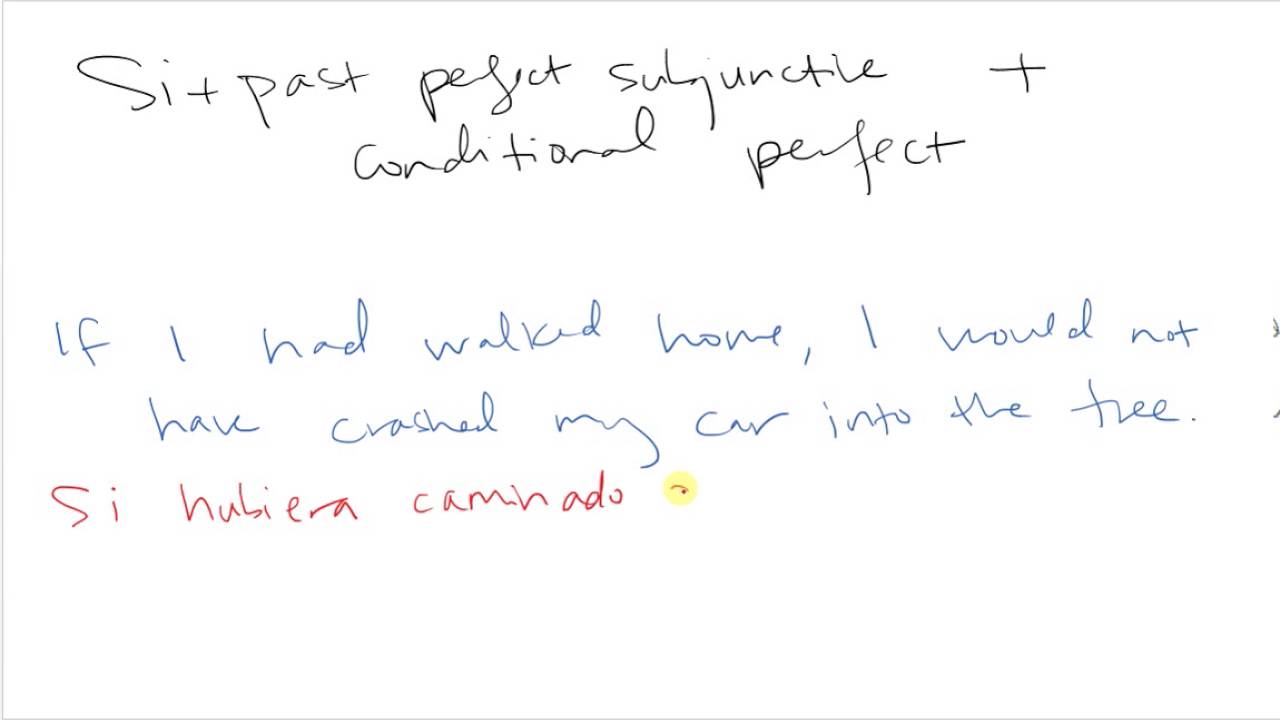 Si + past perfect subjunctive +
conditional perfect
If I had walked home, I would not
have crashed my car into the tree.
Si hubiera caminado